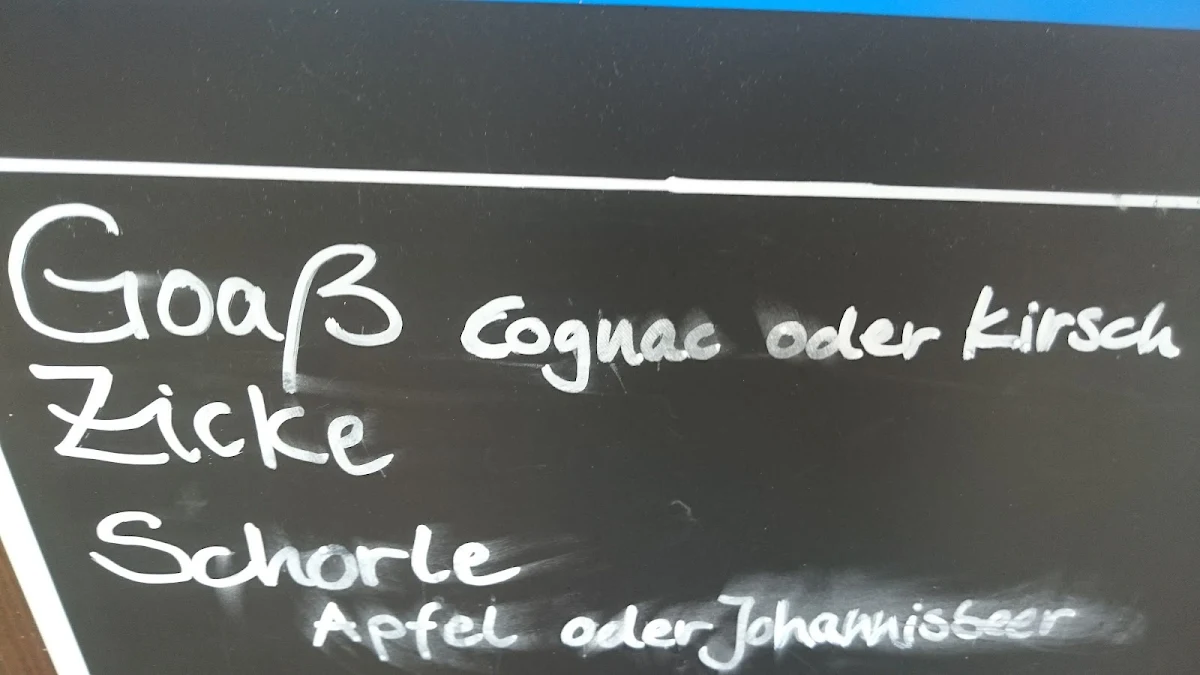 Goaß Cognac oder Kirsch
Zicke
Schorle
Apfel oder Johannisbeer